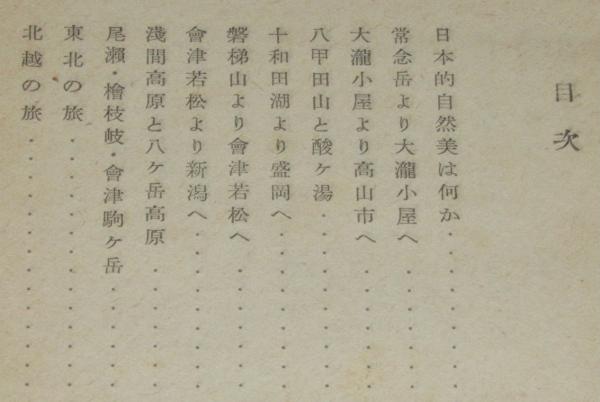 目次
日本的自然美は何か・・・・・・・・
常念岳より大瀧小屋へ・・・・・・・
大瀧小屋より高山市へ・・・・・・・
八甲田山と酸ヶ湯・・・・・・・・・
十和田湖より盛岡へ・・・・・・・・
磐梯山より會津若松へ・・・・・・・
會津若松より新潟へ・・・・・・・・
淺間高原と八ヶ岳高原・・・・・・・
尾瀬・檜枝岐・會津駒ヶ岳・・・・・・
東北の旅・・・・・・・・・・・・
北越の旅・・・・・・・・・・・・